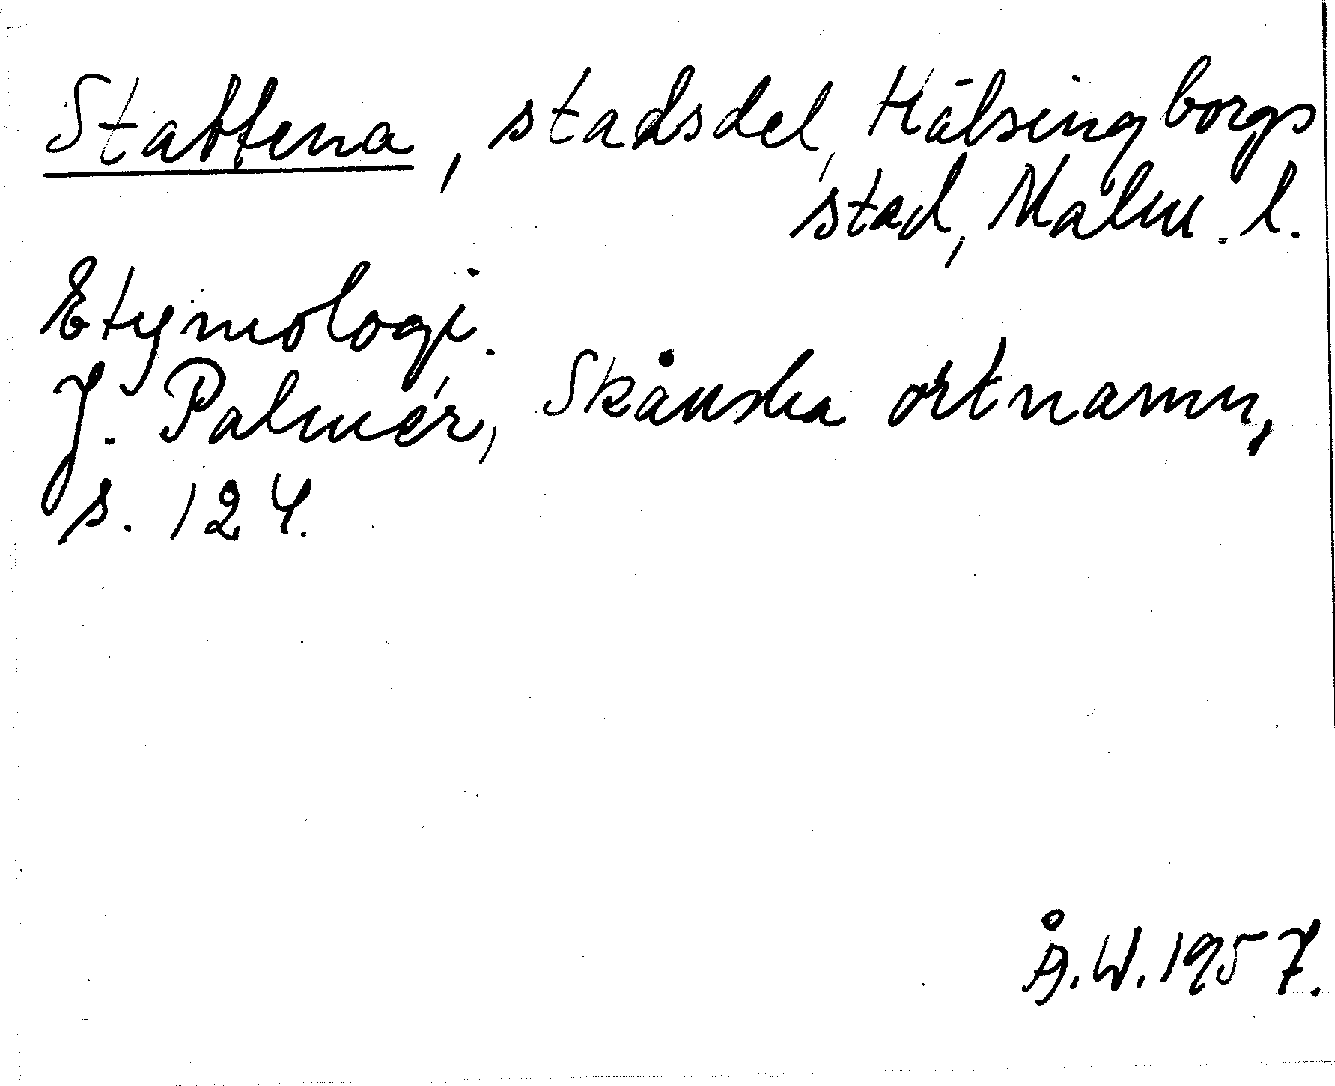 Stattena, stadsdel, Hälsingborgs
stad, Malm. l.
Etymologi.
J. Palmér, Skånska ortnamn,
s. 124.
Å.W. 1957.